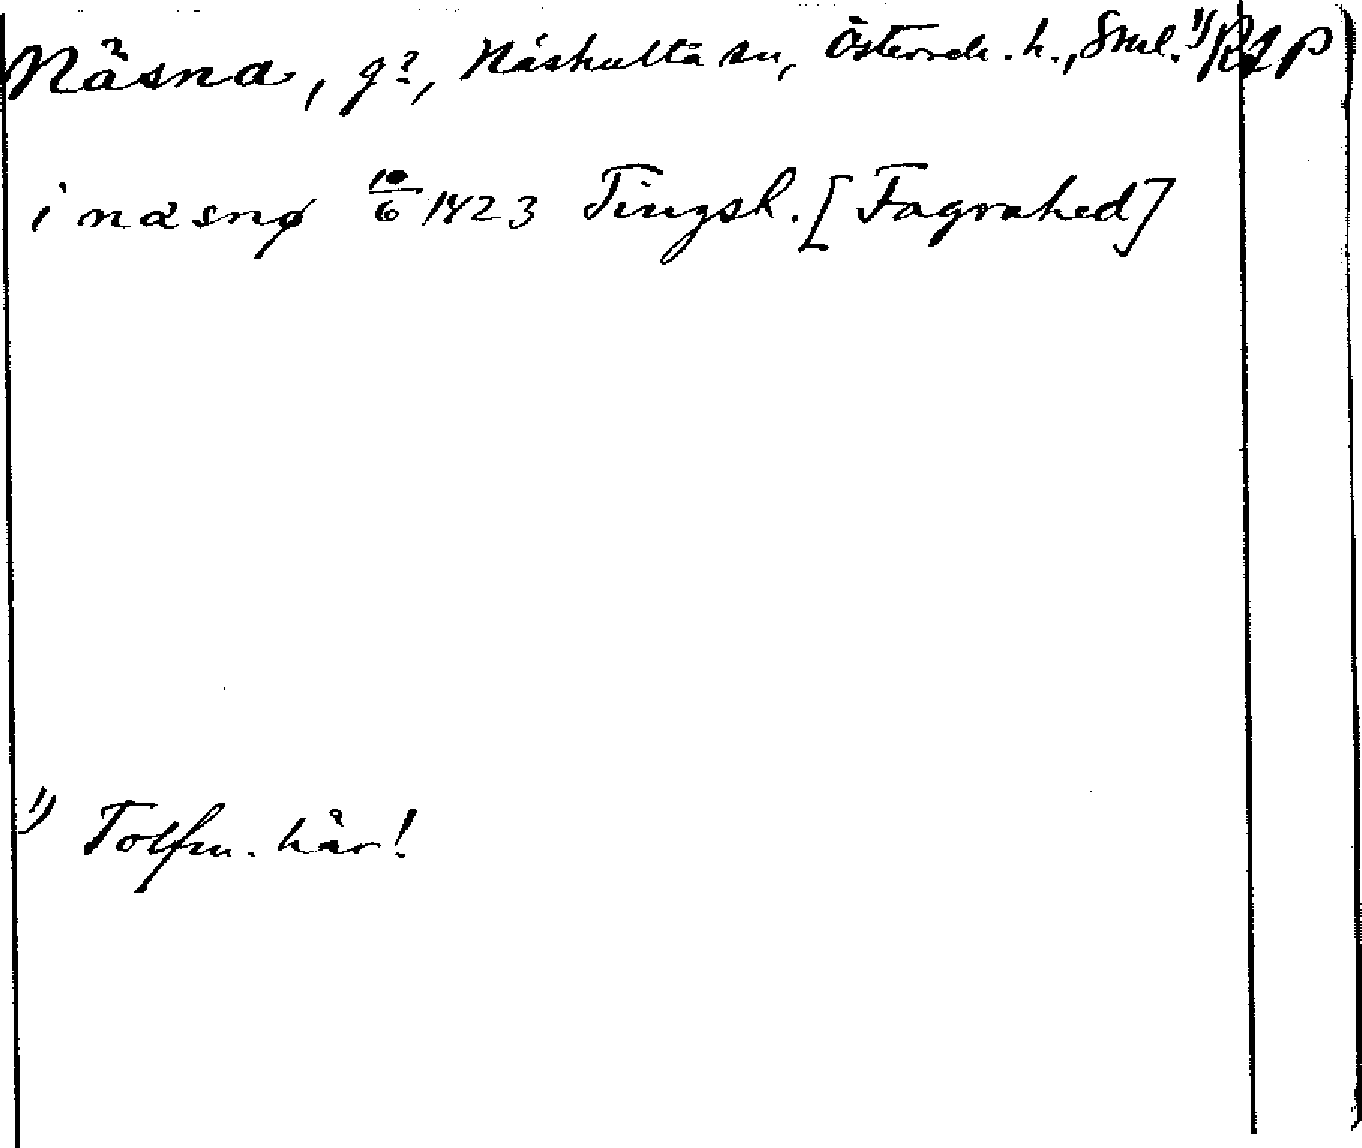 Näsna, g?, Näshulta sn, Österrek. h., Sml. 1) RAp
i næsnø 10/6 1423 Tingsh. [Fagrahed]
1) Tolfm. här!